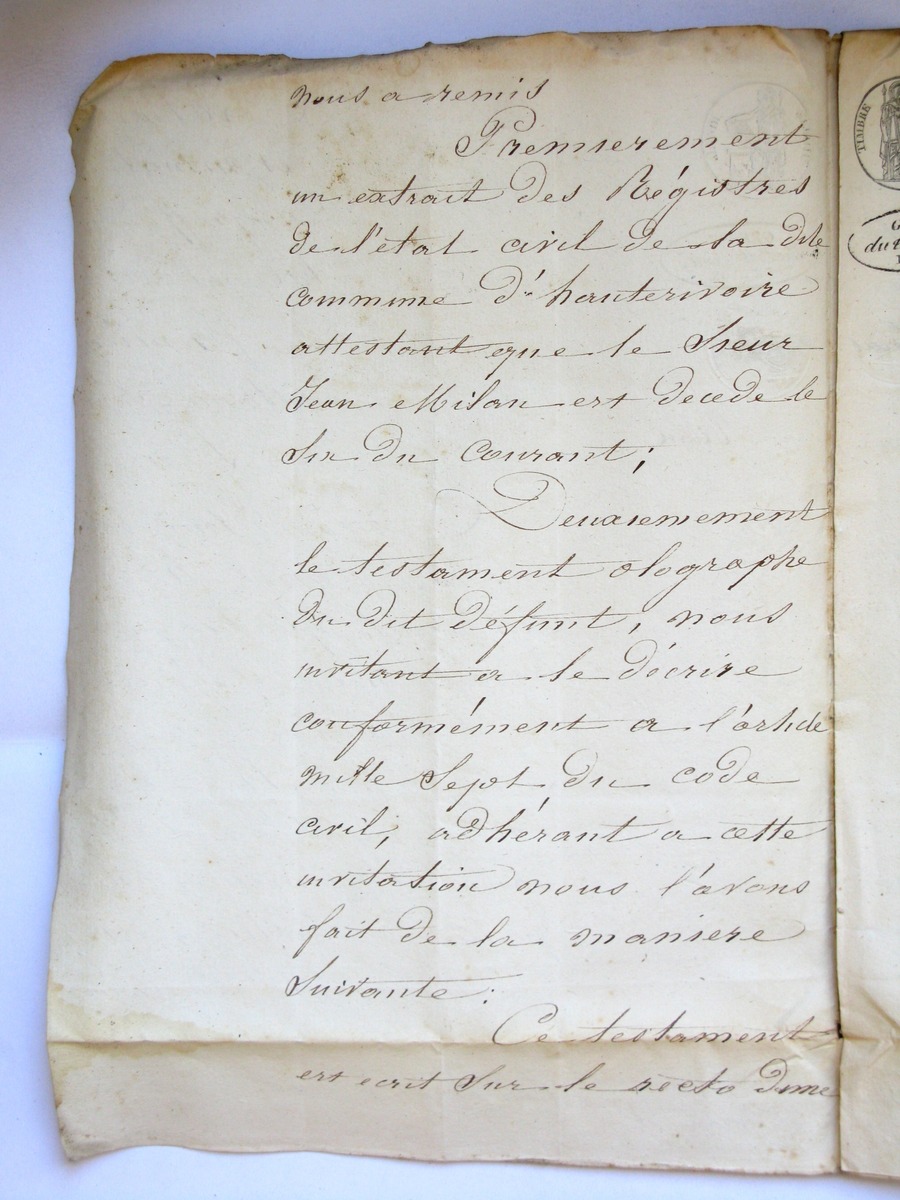 nous a remis
Premierement
un extrait des Régistres
de l'état civil de la dite
commune d'hauterivoire
attestant que le Sieur
Jean Milan est decede le
Six du courant;
Deuxiemement
le testament olographe
du dit défunt, nous
invitant a le décrire
conformément a l'article
mille Sept du code
civil, adhérant a cette
invitation nous l'avons
fait de la maniere
Suivante:
Ce testament
est ecrit Sur le recto d'une
TIMBRE